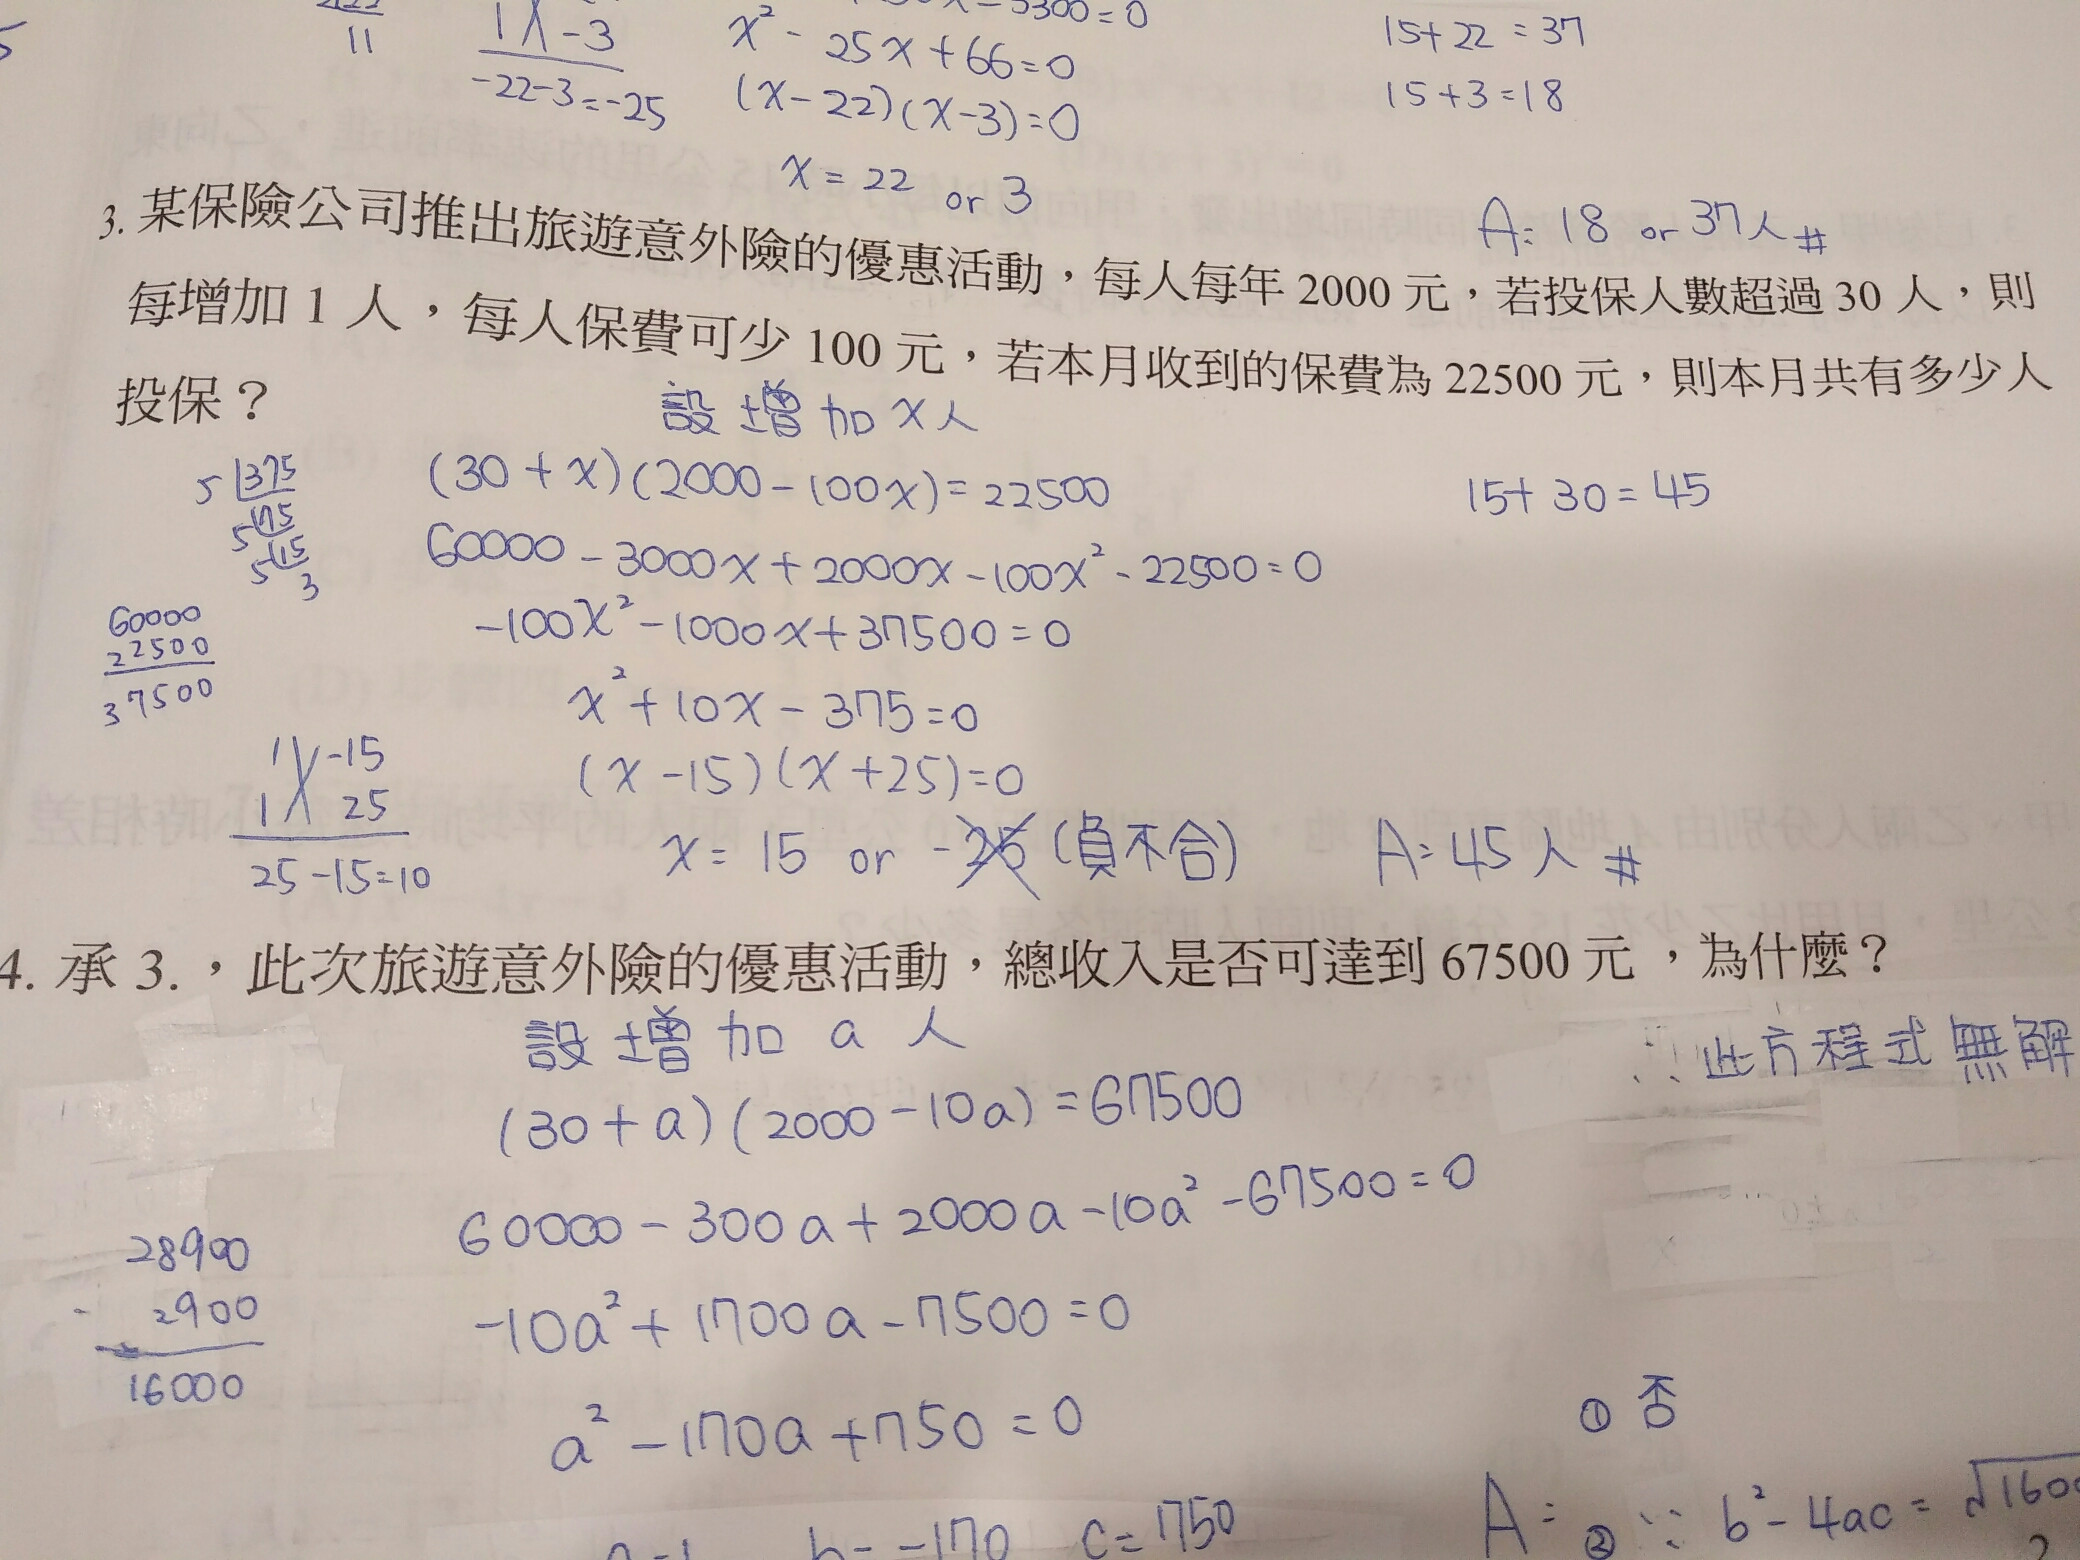 11
1 -3
-22-3=-25
x² - 25x+66=0
(x-22)(x-3)=0
x = 22 or 3
15+22=37
15+3=18
A: 18 or 37人#
3. 某保險公司推出旅遊意外險的優惠活動,每人每年 2000 元,若投保人數超過 30 人,則
每增加 1 人,每人保費可少 100 元,若本月收到的保費為 22500 元,則本月共有多少人
投保?
設增加x人
(30+x)(2000-100x)=22500
15+30=45
60000-3000x+2000x-100x²-22500=0
-100x²-1000x+37500=0
x²+10x-375=0
(x-15)(x+25)=0
x= 15 or -25 (負不合)
A: 45人#
5 375
5 75
5 15
3
60000
22500
37500
1 -15
1 25
25-15=10
4. 承 3.,此次旅遊意外險的優惠活動,總收入是否可達到 67500 元,為什麼?
設增加 a 人
(30+a)(2000-10a)=67500
60000-300a+2000a-10a²-67500=0
-10a²+1700a-7500=0
a²-170a+750=0
b=-170 c=1750
28900
- 2900
16000
∴此方程式無解
① 否
A: ② ∵ b²-4ac=